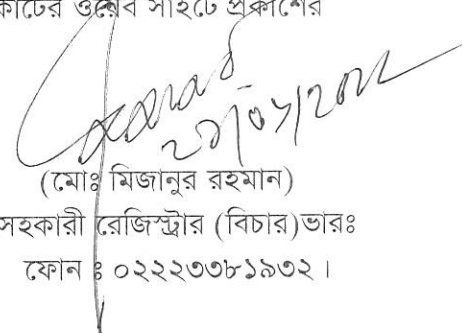 ওয়েব সাইটে প্রকাশের
(মোঃ মিজানুর রহমান)
সহকারী রেজিস্ট্রার (বিচার)ভারঃ
ফোন ঃ ০২২২৩৩৮১৯৩২ ।